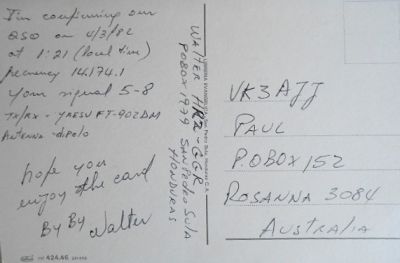 I'm confirming our
QSO on 4/3/82
at 1:21 (local time)
frecuency 14.174.1
Your signal 5-8
TX/RX - YAESU FT-902DM
Antenna - dipolo
hope you
enjoy the card
By By
Walter
WALTER HR2-GGR
POBOX 1939 SAN PEDRO SULA
HONDURAS
VK3AJJ
PAUL
P.O BOX 152
ROSANNA 3084
AUSTRALIA